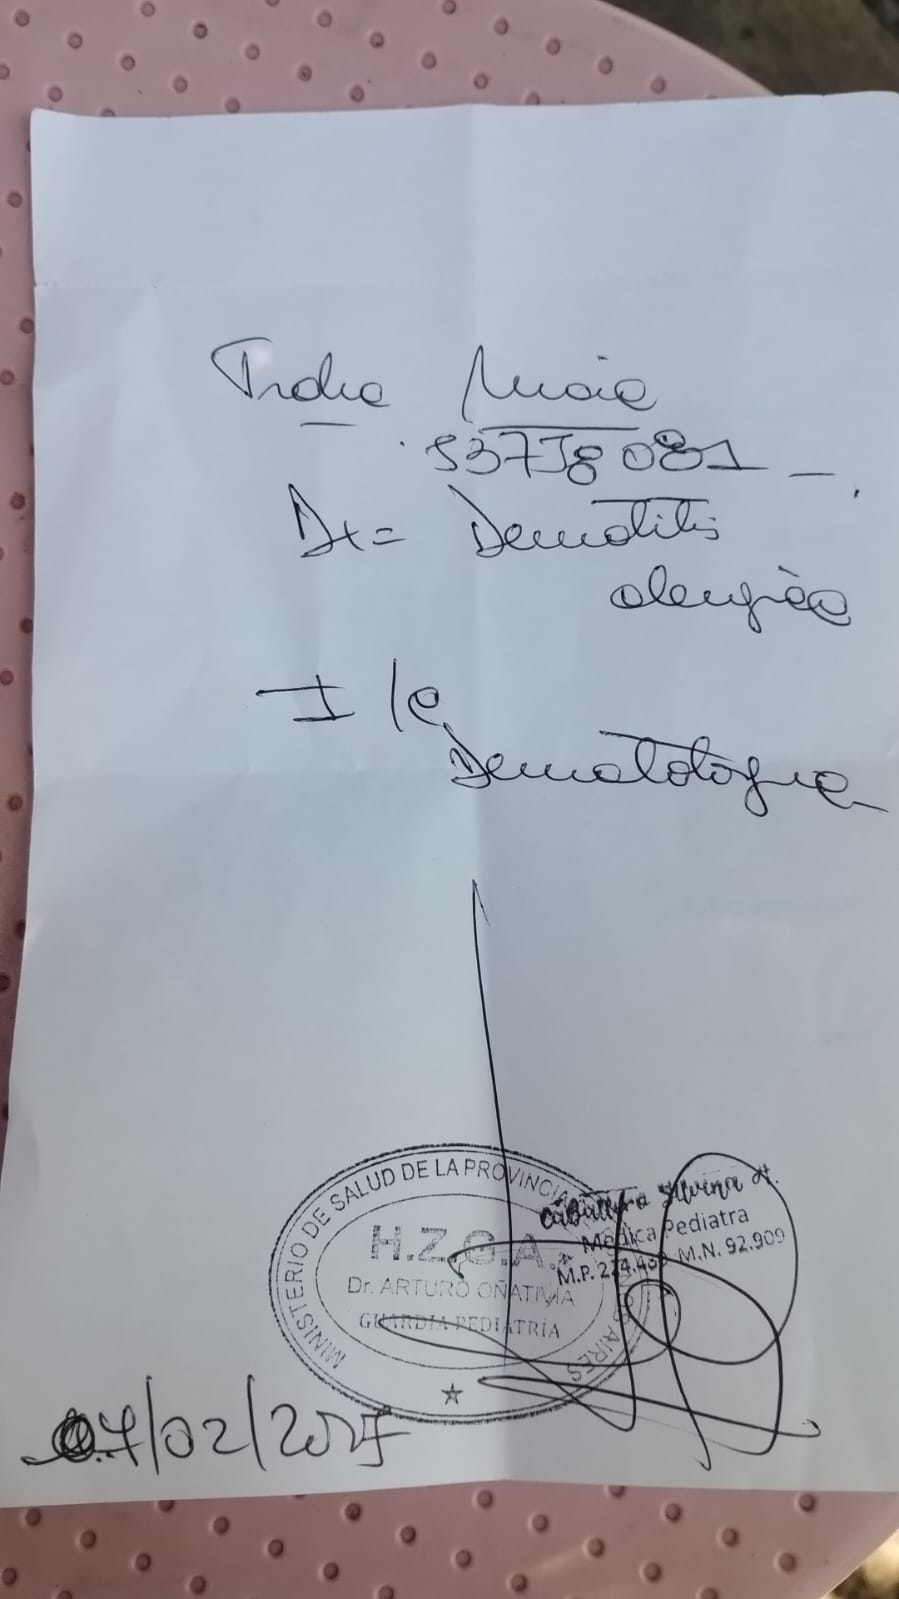 53758081
Dx= Dermatitis
alergica
I/c
Dermatologia
MINISTERIO DE SALUD DE LA PROVINCIA
AIRES
H.Z.G.A.
Dr. ARTURO OÑATIVIA
GUARDIA PEDIATRÍA
Silvina A.
Médica Pediatra
M.P. M.N. 92.909
/02/2025